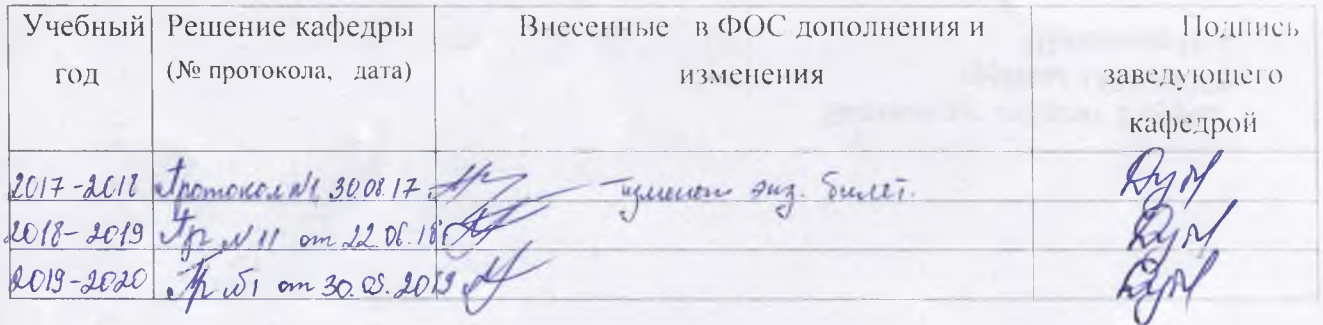 Учебный год Решение кафедры (№ протокола, дата) Внесенные в ФОС дополнения и изменения Подпись заведующего кафедрой
2017-2018 Протокол №1, 30.08.17. экз. билет.
2018-2019 Пр №11 от 22.06.18
2019-2020 Пр №1 от 30.08.2019